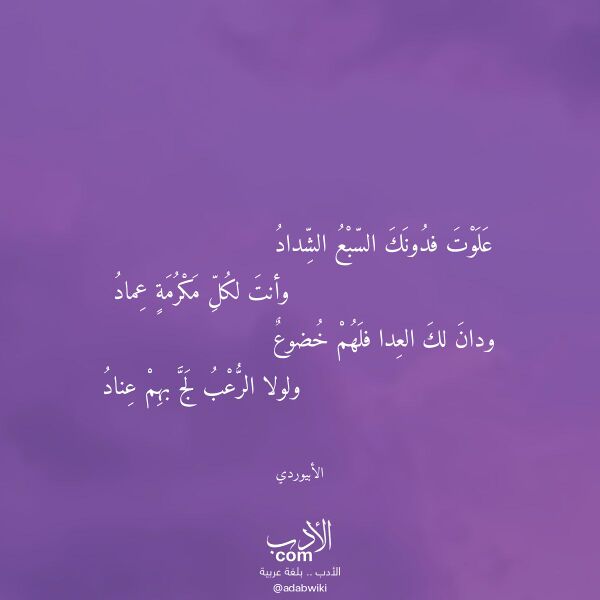 عَلَوْتَ فدُونَكَ السّبْعُ الشِّدادُ
وأنتَ لكُلِّ مَكْرُمَةٍ عِمادُ
ودانَ لكَ العِدا فلَهُمْ خُضوعٌ
ولولا الرُّعْبُ لَجَّ بهِمْ عِنادُ
الأبيوردي
الأدب
com
الأدب .. بلغة عربية
@adabwiki